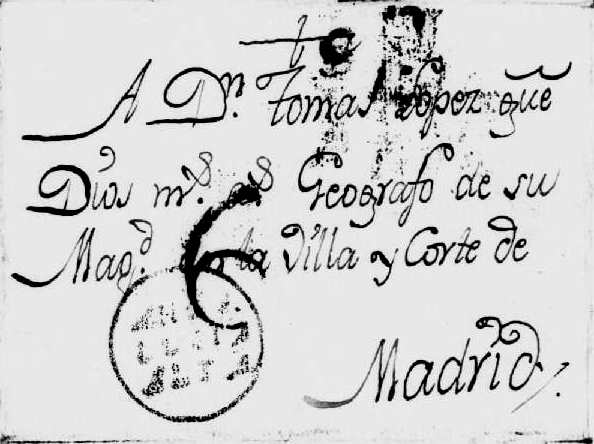 A Dn. Tomas Lopez que
Dios ms. as. Geografo de su
Magd. en la Villa y Corte de
Madrid.
6